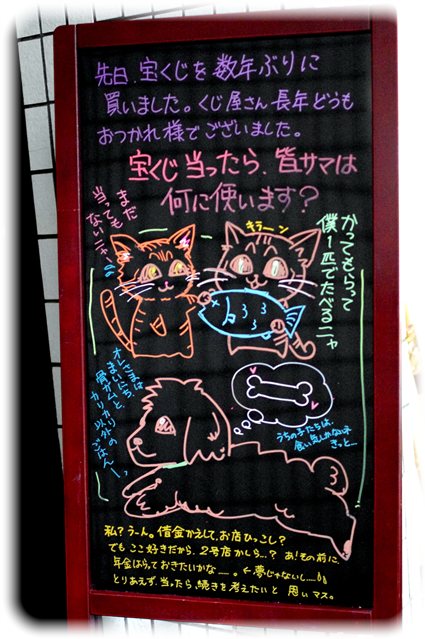 先日、宝くじを数年ぶりに
買いました。くじ屋さん長年どうも
おつかれ様でございました。
宝くじ当ったら、皆サマは
何に使います?
まだ
当っても
ないニャー
キラーン
かってもらって
僕1匹でたべるニャ
オレさまは
まいにち
骨ガムと、
カリカリ以外の
ごはんー
うちの子たちは、
食い気しかないネ
きっと…
私?うーん。借金かえして、お店ひっこし?
でもここ好きだから、2号店かしら…?あ!その前に、
年金はらっておきたいかな……。←夢じゃないし…
とりあえず、当ったら、続きを考えたいと思いマス。